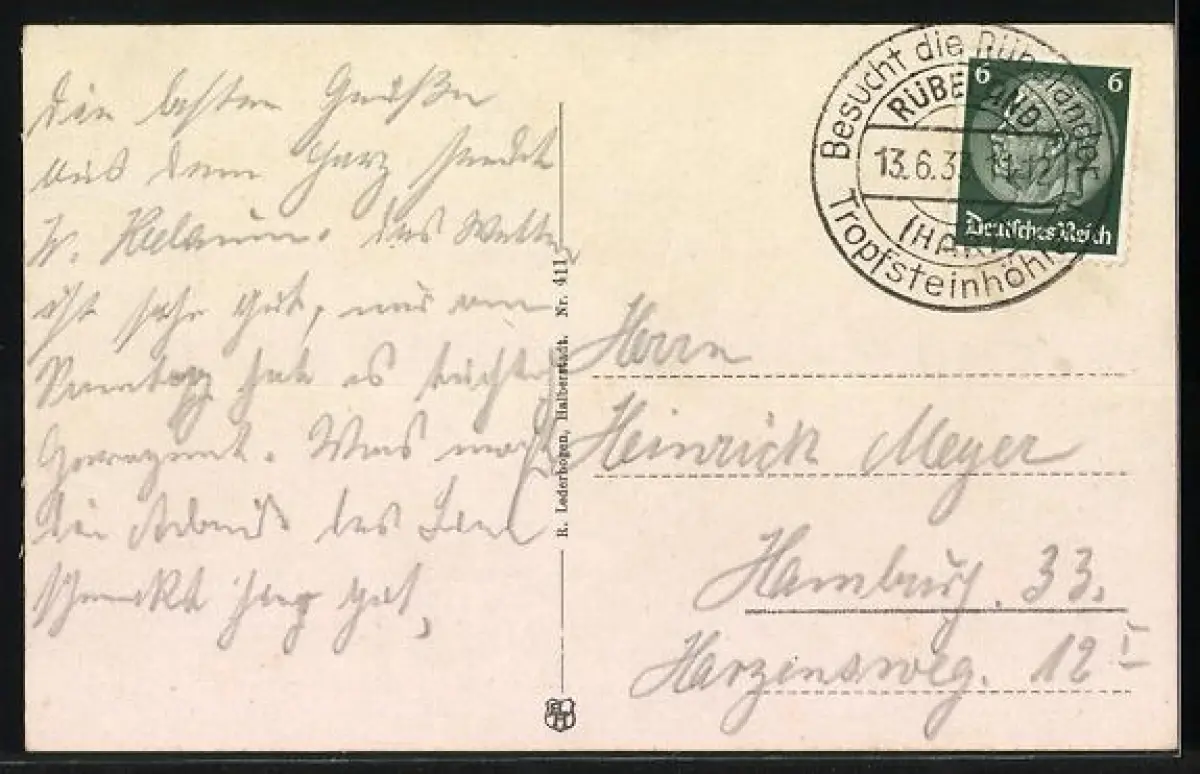 Die besten Grüße
aus dem Harz sendet
W. das Wetter
ist sehr gut, nur am
Sonntag hat es tüchtig
Geregnet. Was macht
die Arbeit das Bier
schmeckt hier gut,
R. Lederbogen, Halberstadt. Nr. 411
Besucht die Rübeländer
Tropfsteinhöhlen
RÜBELAND
13.6.33 11-12
(HARZ)
6 6
Deutsches Reich
Herrn
Heinrich Meyer
Hamburg. 33.
Harzensweg. 12 I